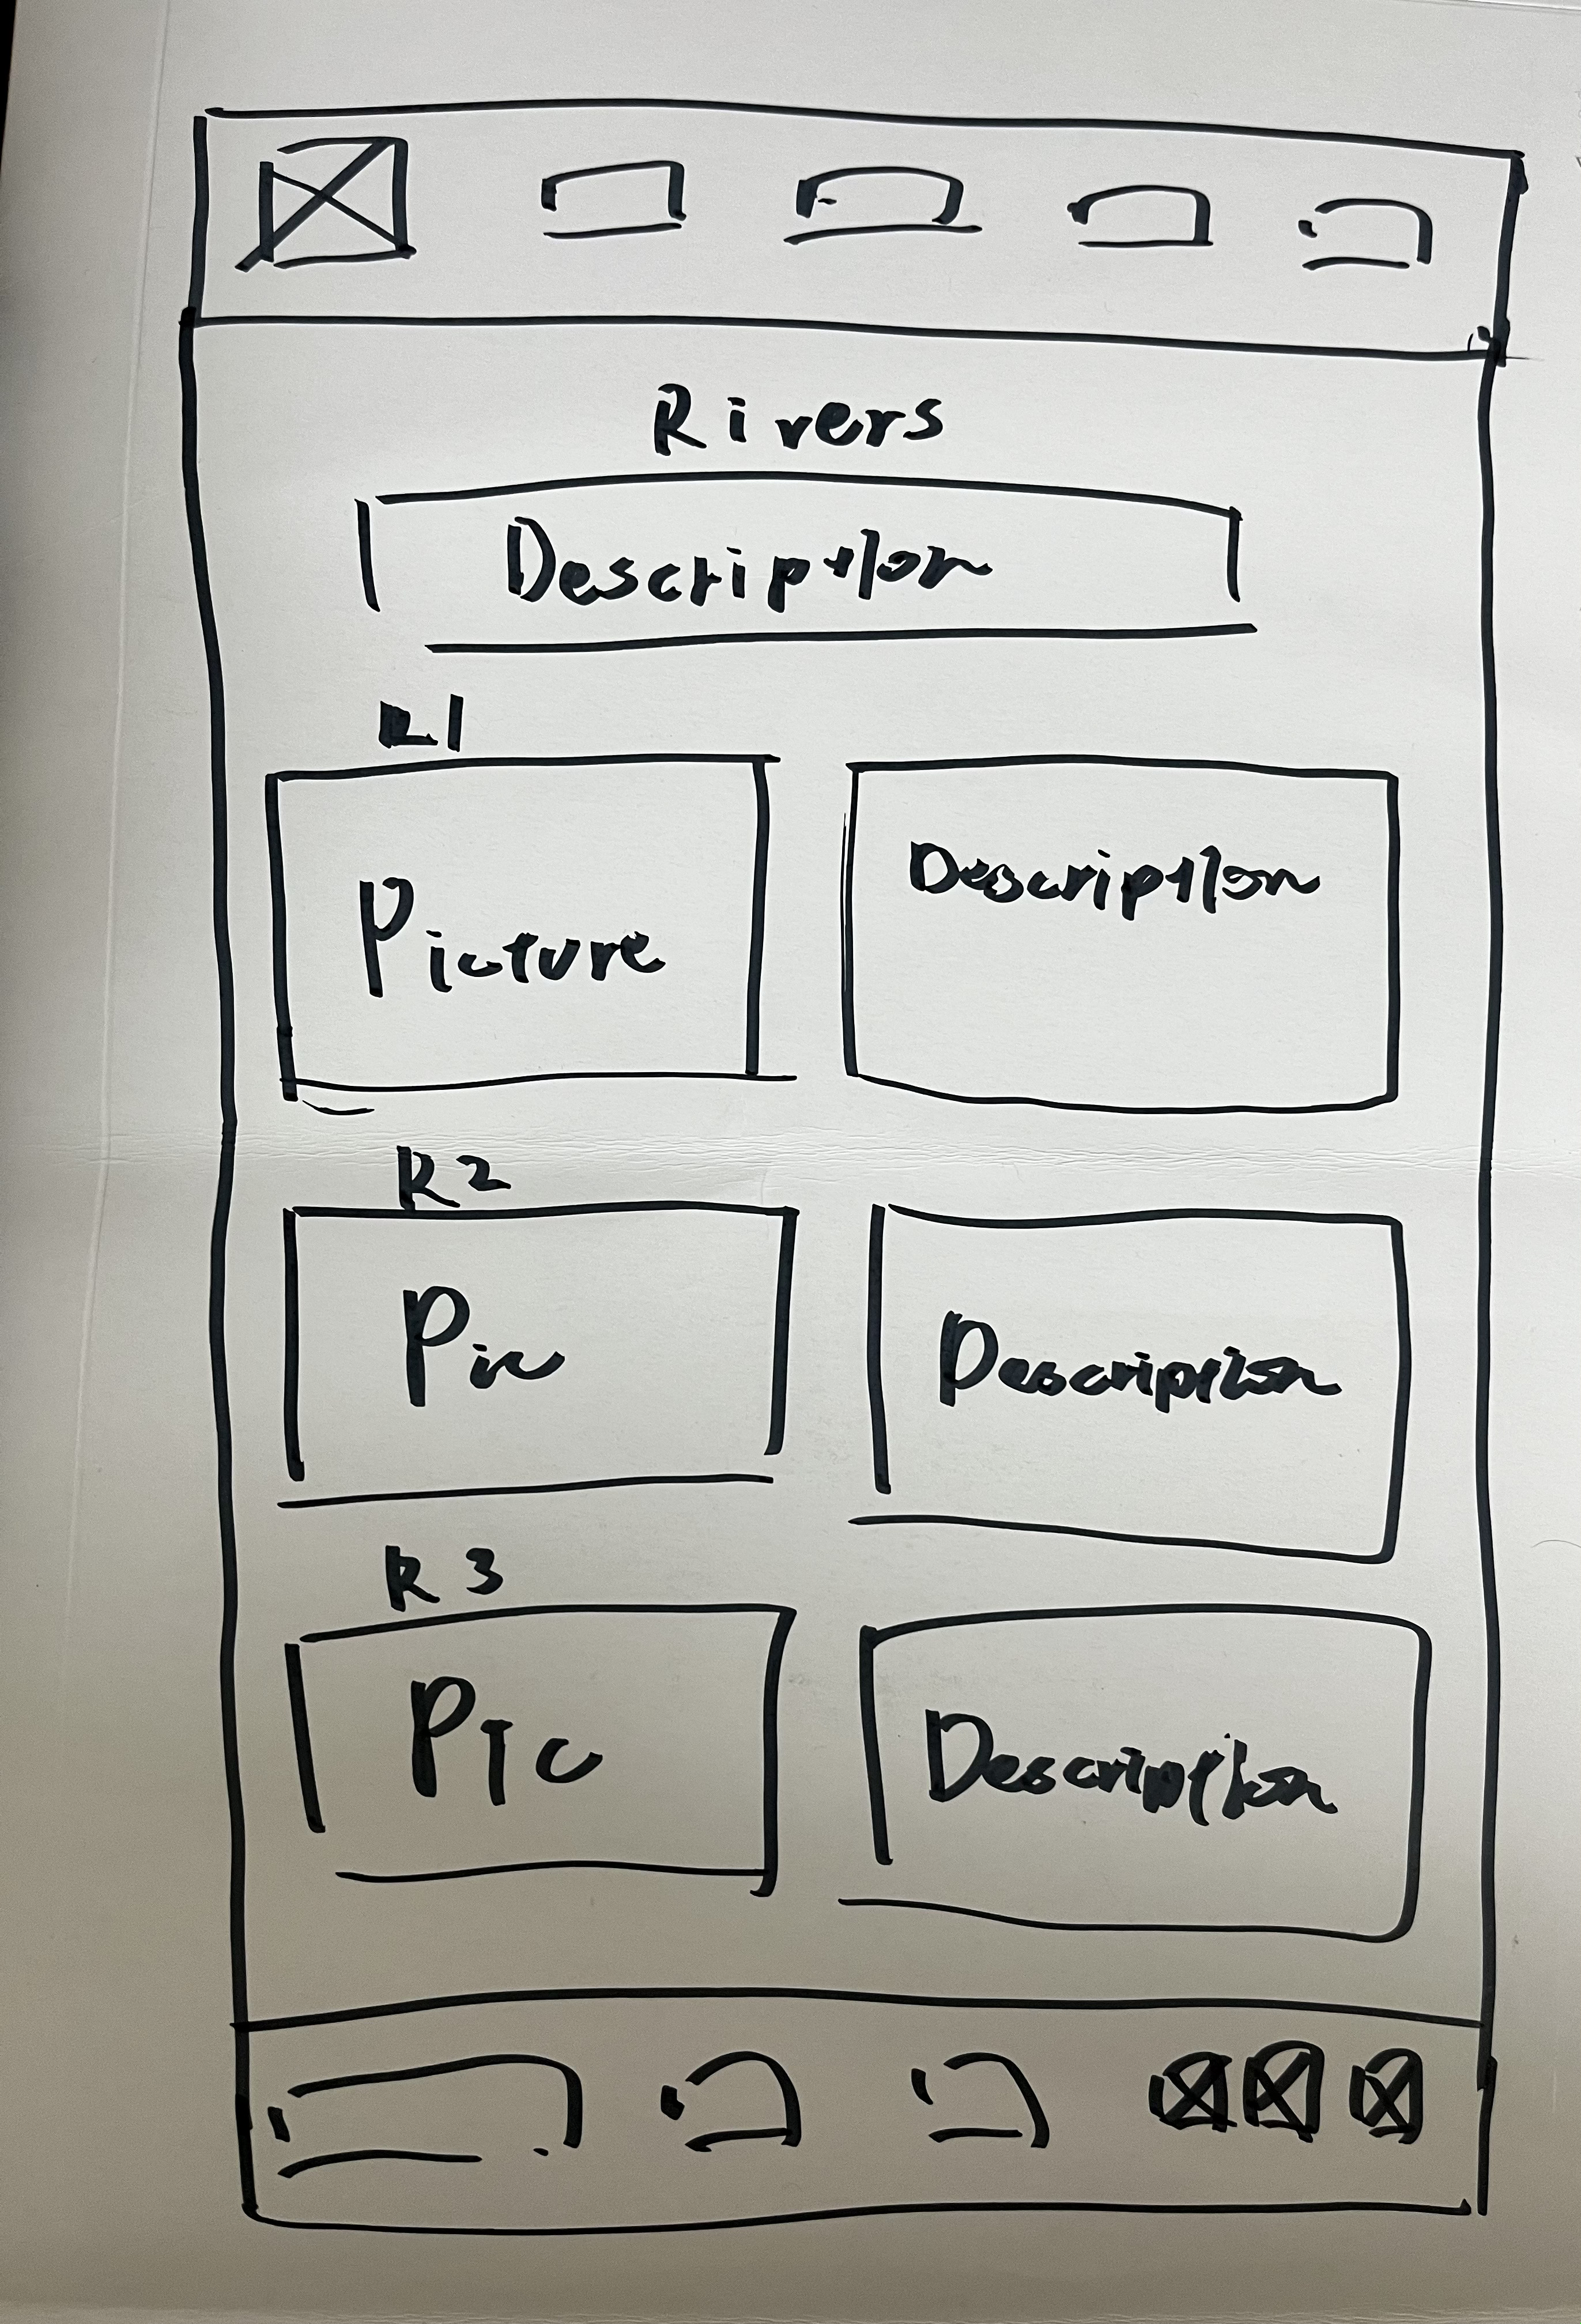 Rivers
Description
R1
Picture
Description
R2
Pic
Description
R3
Pic
Description